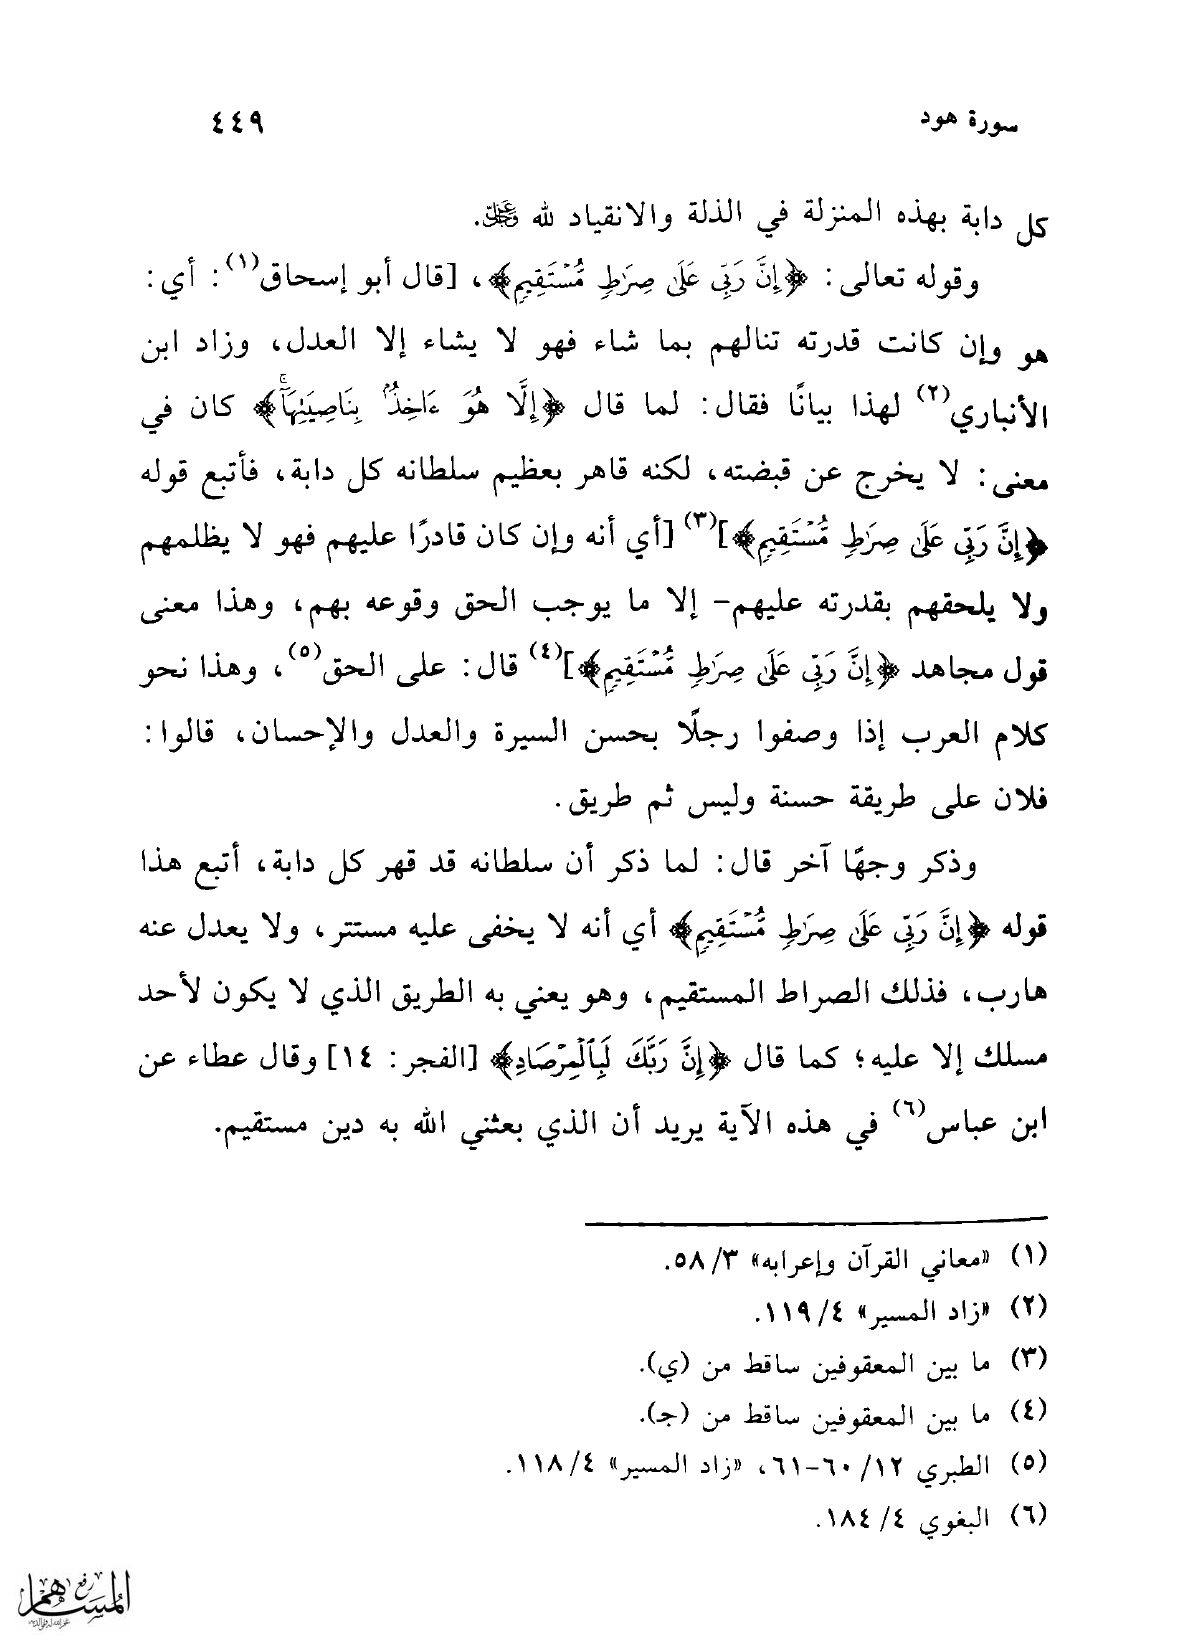 سورة هود
٤٤٩
كل دابة بهذه المنزلة في الذلة والانقياد لله عَزَّ وَجَلَّ.
وقوله تعالى: ﴿إِنَّ رَبِّي عَلَىٰ صِرَٰطٍ مُّسْتَقِيمٍ﴾، [قال أبو إسحاق(١): أي:
هو وإن كانت قدرته تنالهم بما شاء فهو لا يشاء إلا العدل، وزاد ابن
الأنباري(٢) لهذا بيانًا فقال: لما قال ﴿إِلَّا هُوَ ءَاخِذٌۢ بِنَاصِيَتِهَآۚ﴾ كان في
معنى: لا يخرج عن قبضته، لكنه قاهر بعظيم سلطانه كل دابة، فأتبع قوله
﴿إِنَّ رَبِّي عَلَىٰ صِرَٰطٍ مُّسْتَقِيمٍ﴾](٣) [أي أنه وإن كان قادرًا عليهم فهو لا يظلمهم
ولا يلحقهم بقدرته عليهم- إلا ما يوجب الحق وقوعه بهم، وهذا معنى
قول مجاهد ﴿إِنَّ رَبِّي عَلَىٰ صِرَٰطٍ مُّسْتَقِيمٍ﴾](٤) قال: على الحق(٥)، وهذا نحو
كلام العرب إذا وصفوا رجلًا بحسن السيرة والعدل والإحسان، قالوا:
فلان على طريقة حسنة وليس ثم طريق.
وذكر وجهًا آخر قال: لما ذكر أن سلطانه قد قهر كل دابة، أتبع هذا
قوله ﴿إِنَّ رَبِّي عَلَىٰ صِرَٰطٍ مُّسْتَقِيمٍ﴾ أي أنه لا يخفى عليه مستتر، ولا يعدل عنه
هارب، فذلك الصراط المستقيم، وهو يعني به الطريق الذي لا يكون لأحد
مسلك إلا عليه؛ كما قال ﴿إِنَّ رَبَّكَ لَبِٱلْمِرْصَادِ﴾ [الفجر: ١٤] وقال عطاء عن
ابن عباس(٦) في هذه الآية يريد أن الذي بعثني الله به دين مستقيم.
(١) «معاني القرآن وإعرابه» ٣/ ٥٨.
(٢) «زاد المسير» ٤/ ١١٩.
(٣) ما بين المعقوفين ساقط من (ي).
(٤) ما بين المعقوفين ساقط من (جـ).
(٥) الطبري ١٢/ ٦٠-٦١، «زاد المسير» ٤/ ١١٨.
(٦) البغوي ٤/ ١٨٤.